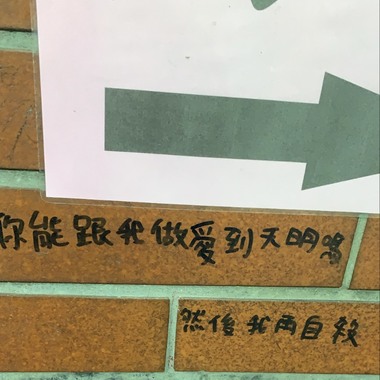 你能跟我做愛到天明嗎
然後我再自殺